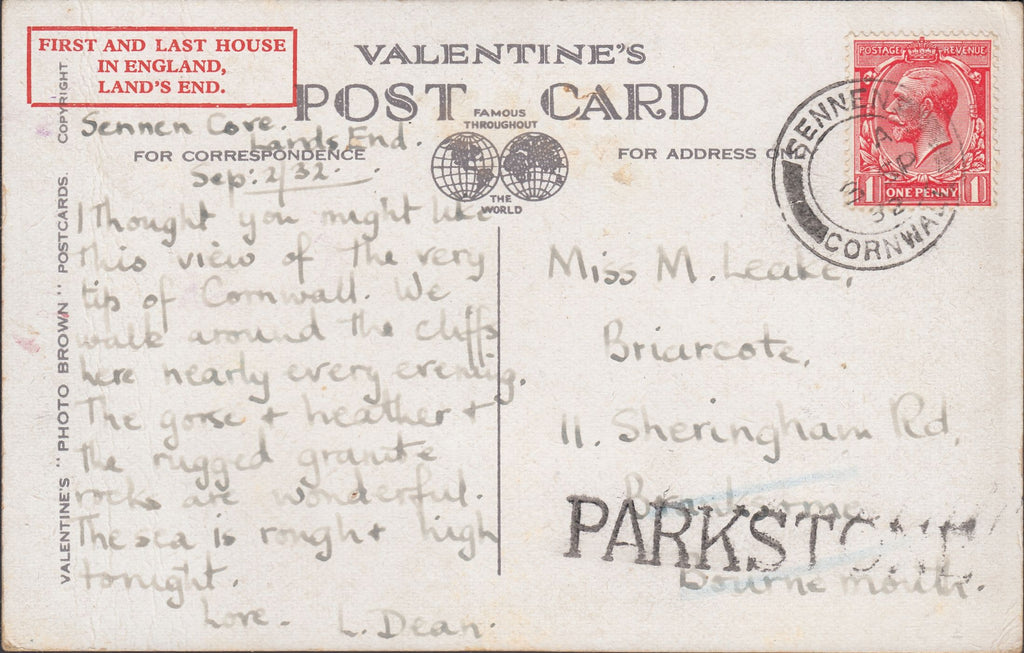 FIRST AND LAST HOUSE
IN ENGLAND,
LAND'S END.
VALENTINE'S
POST CARD
FAMOUS
THROUGHOUT
THE
WORLD
FOR CORRESPONDENCE
FOR ADDRESS ON
COPYRIGHT
VALENTINE'S "PHOTO BROWN" POSTCARDS.
Sennen Cove.
Lands End.
Sep: 2/32.
I Thought you might like
this view of the very
tip of Cornwall. We
walk around the cliffs
here nearly every evening.
The gorse + heather +
the rugged granite
rocks are wonderful.
The sea is rough + high
tonight.
Love. L. Dean.
POSTAGE REVENUE
1 ONE PENNY 1
SENNEN
A
3 SP
32
CORNWALL
Miss M. Leake,
Briarcote,
11. Sheringham Rd,
Branksome
PARKSTONE
Bournemouth.